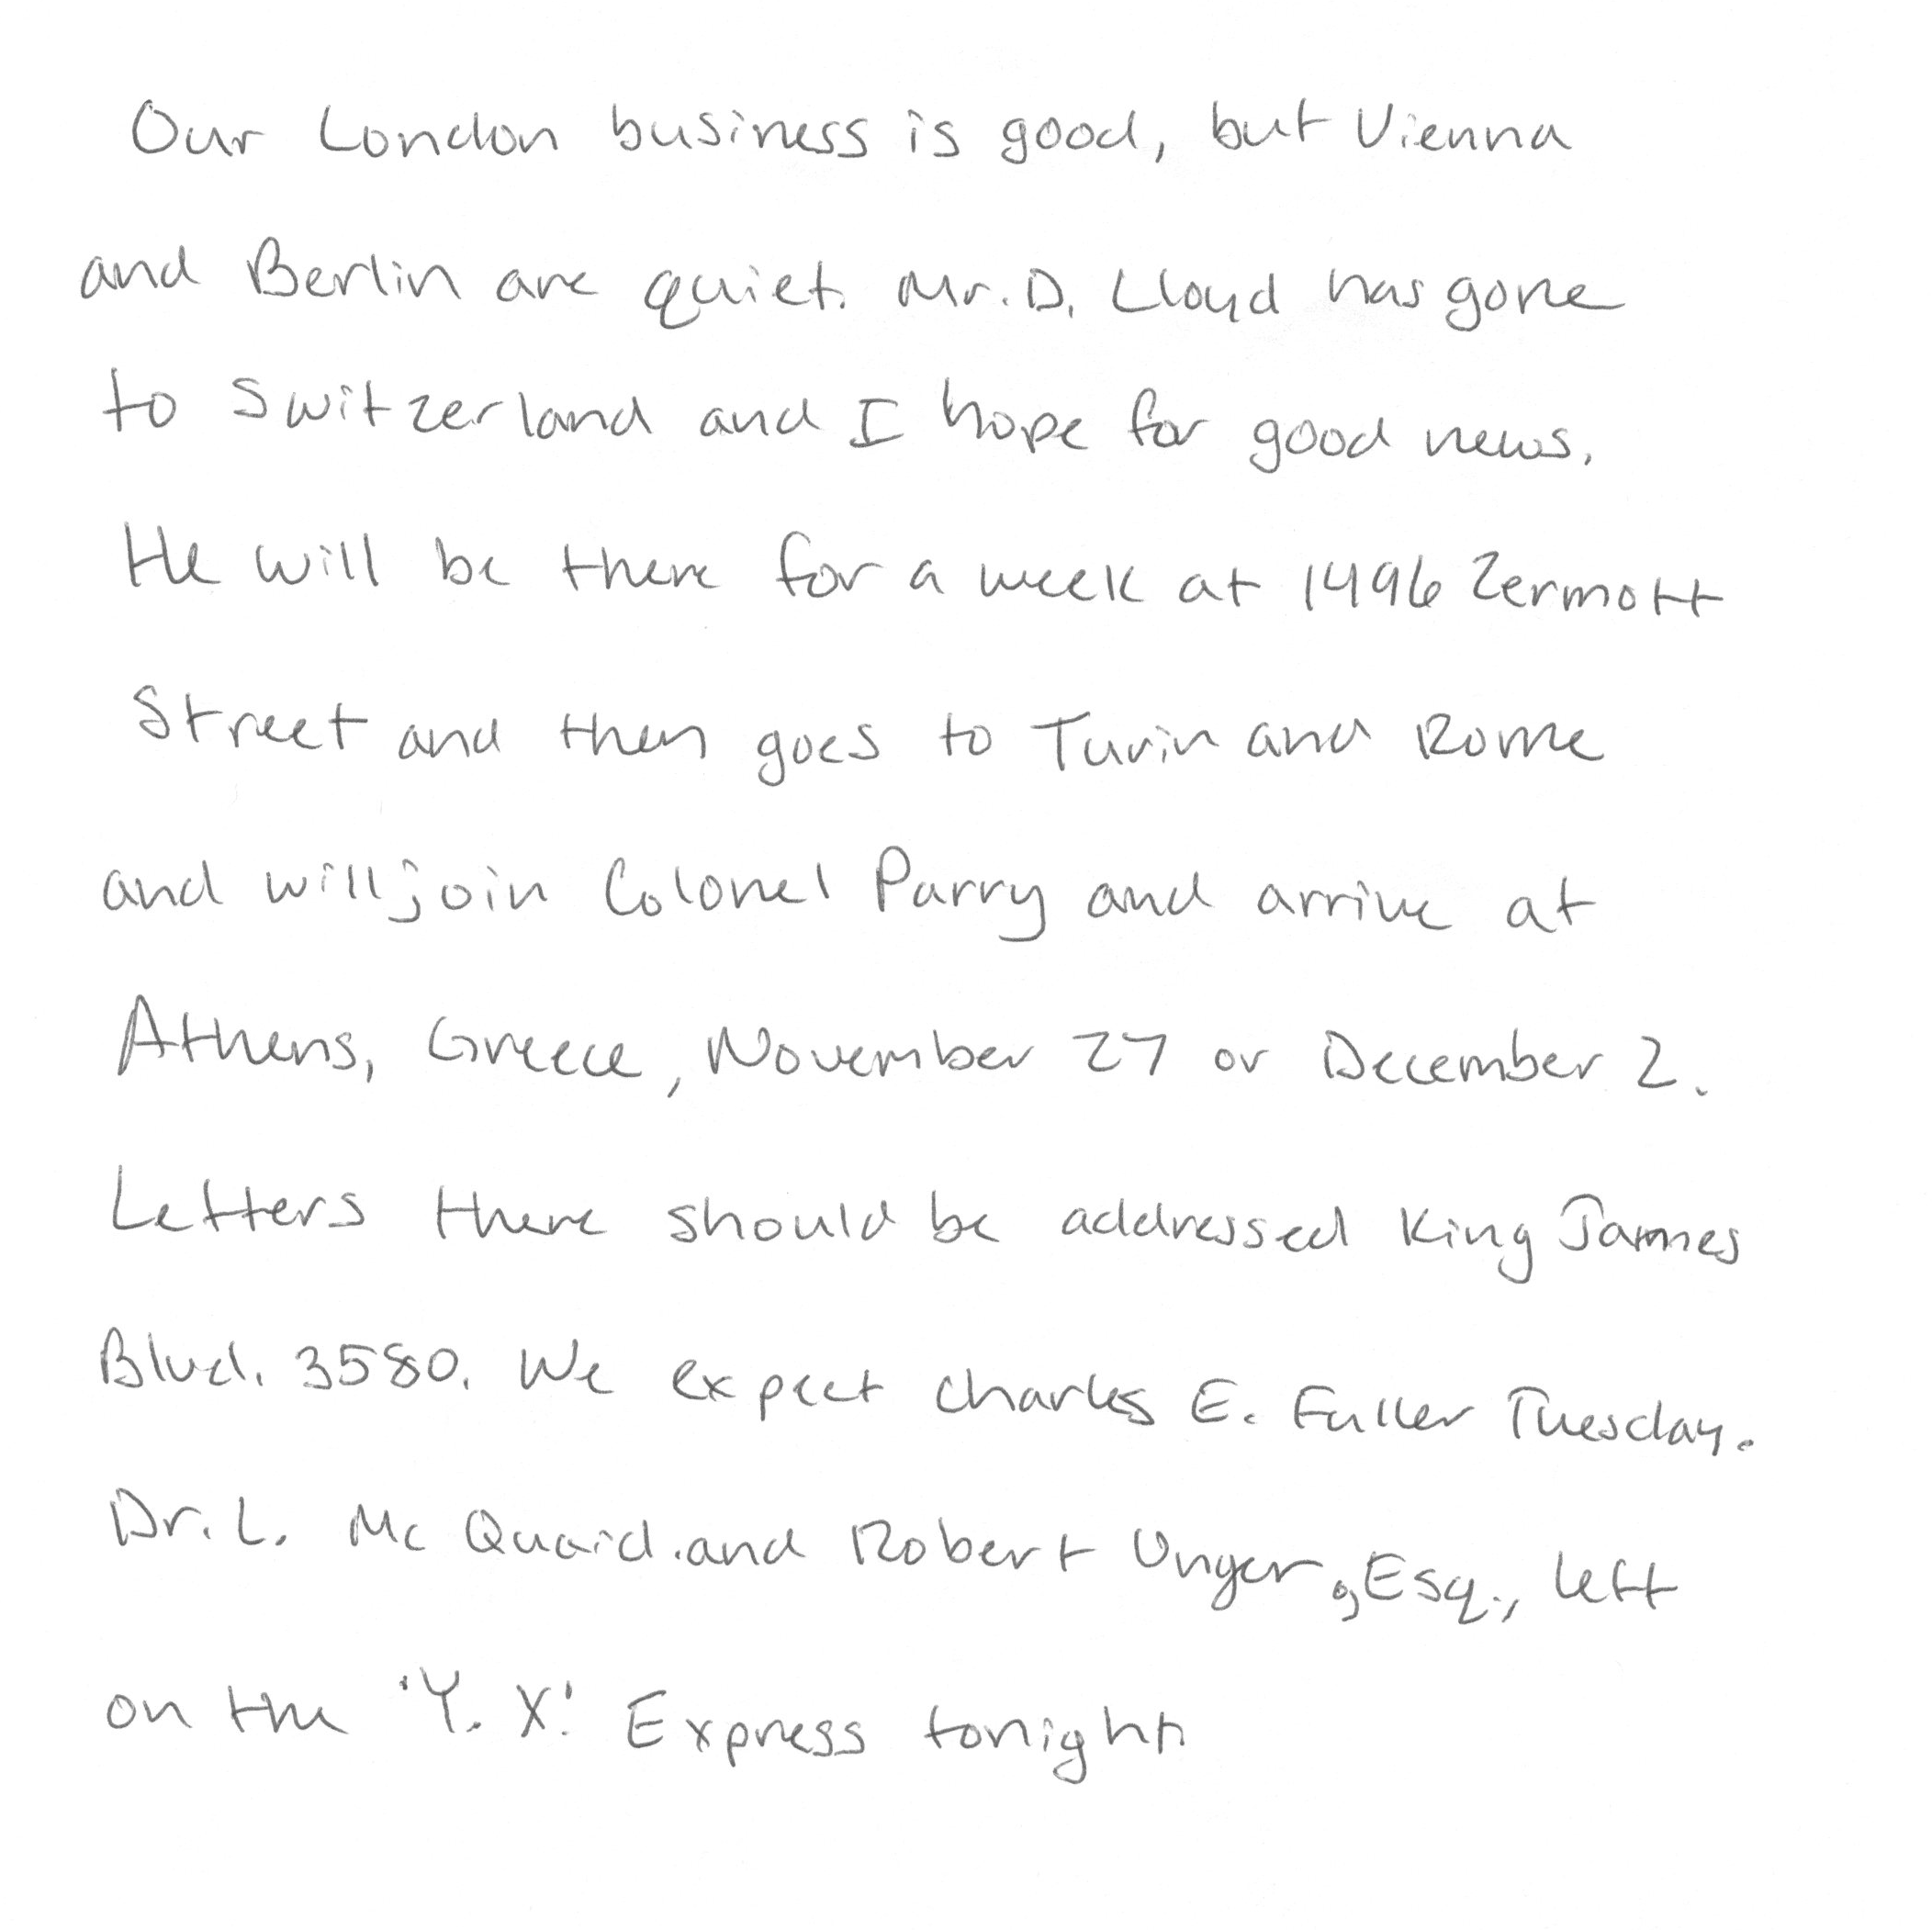 Our London business is good, but Vienna
and Berlin are quiet. Mr. D. Lloyd has gone
to Switzerland and I hope for good news.
He will be there for a week at 1496 Zermott
Street and then goes to Turin and Rome
and will join Colonel Parry and arrive at
Athens, Greece, November 27 or December 2.
Letters there should be addressed King James
Blvd. 3580. We expect Charles E. Fuller Tuesday.
Dr. L. Mc Quaid.and Robert Unger, Esq., left
on the 'Y. X.' Express tonight.